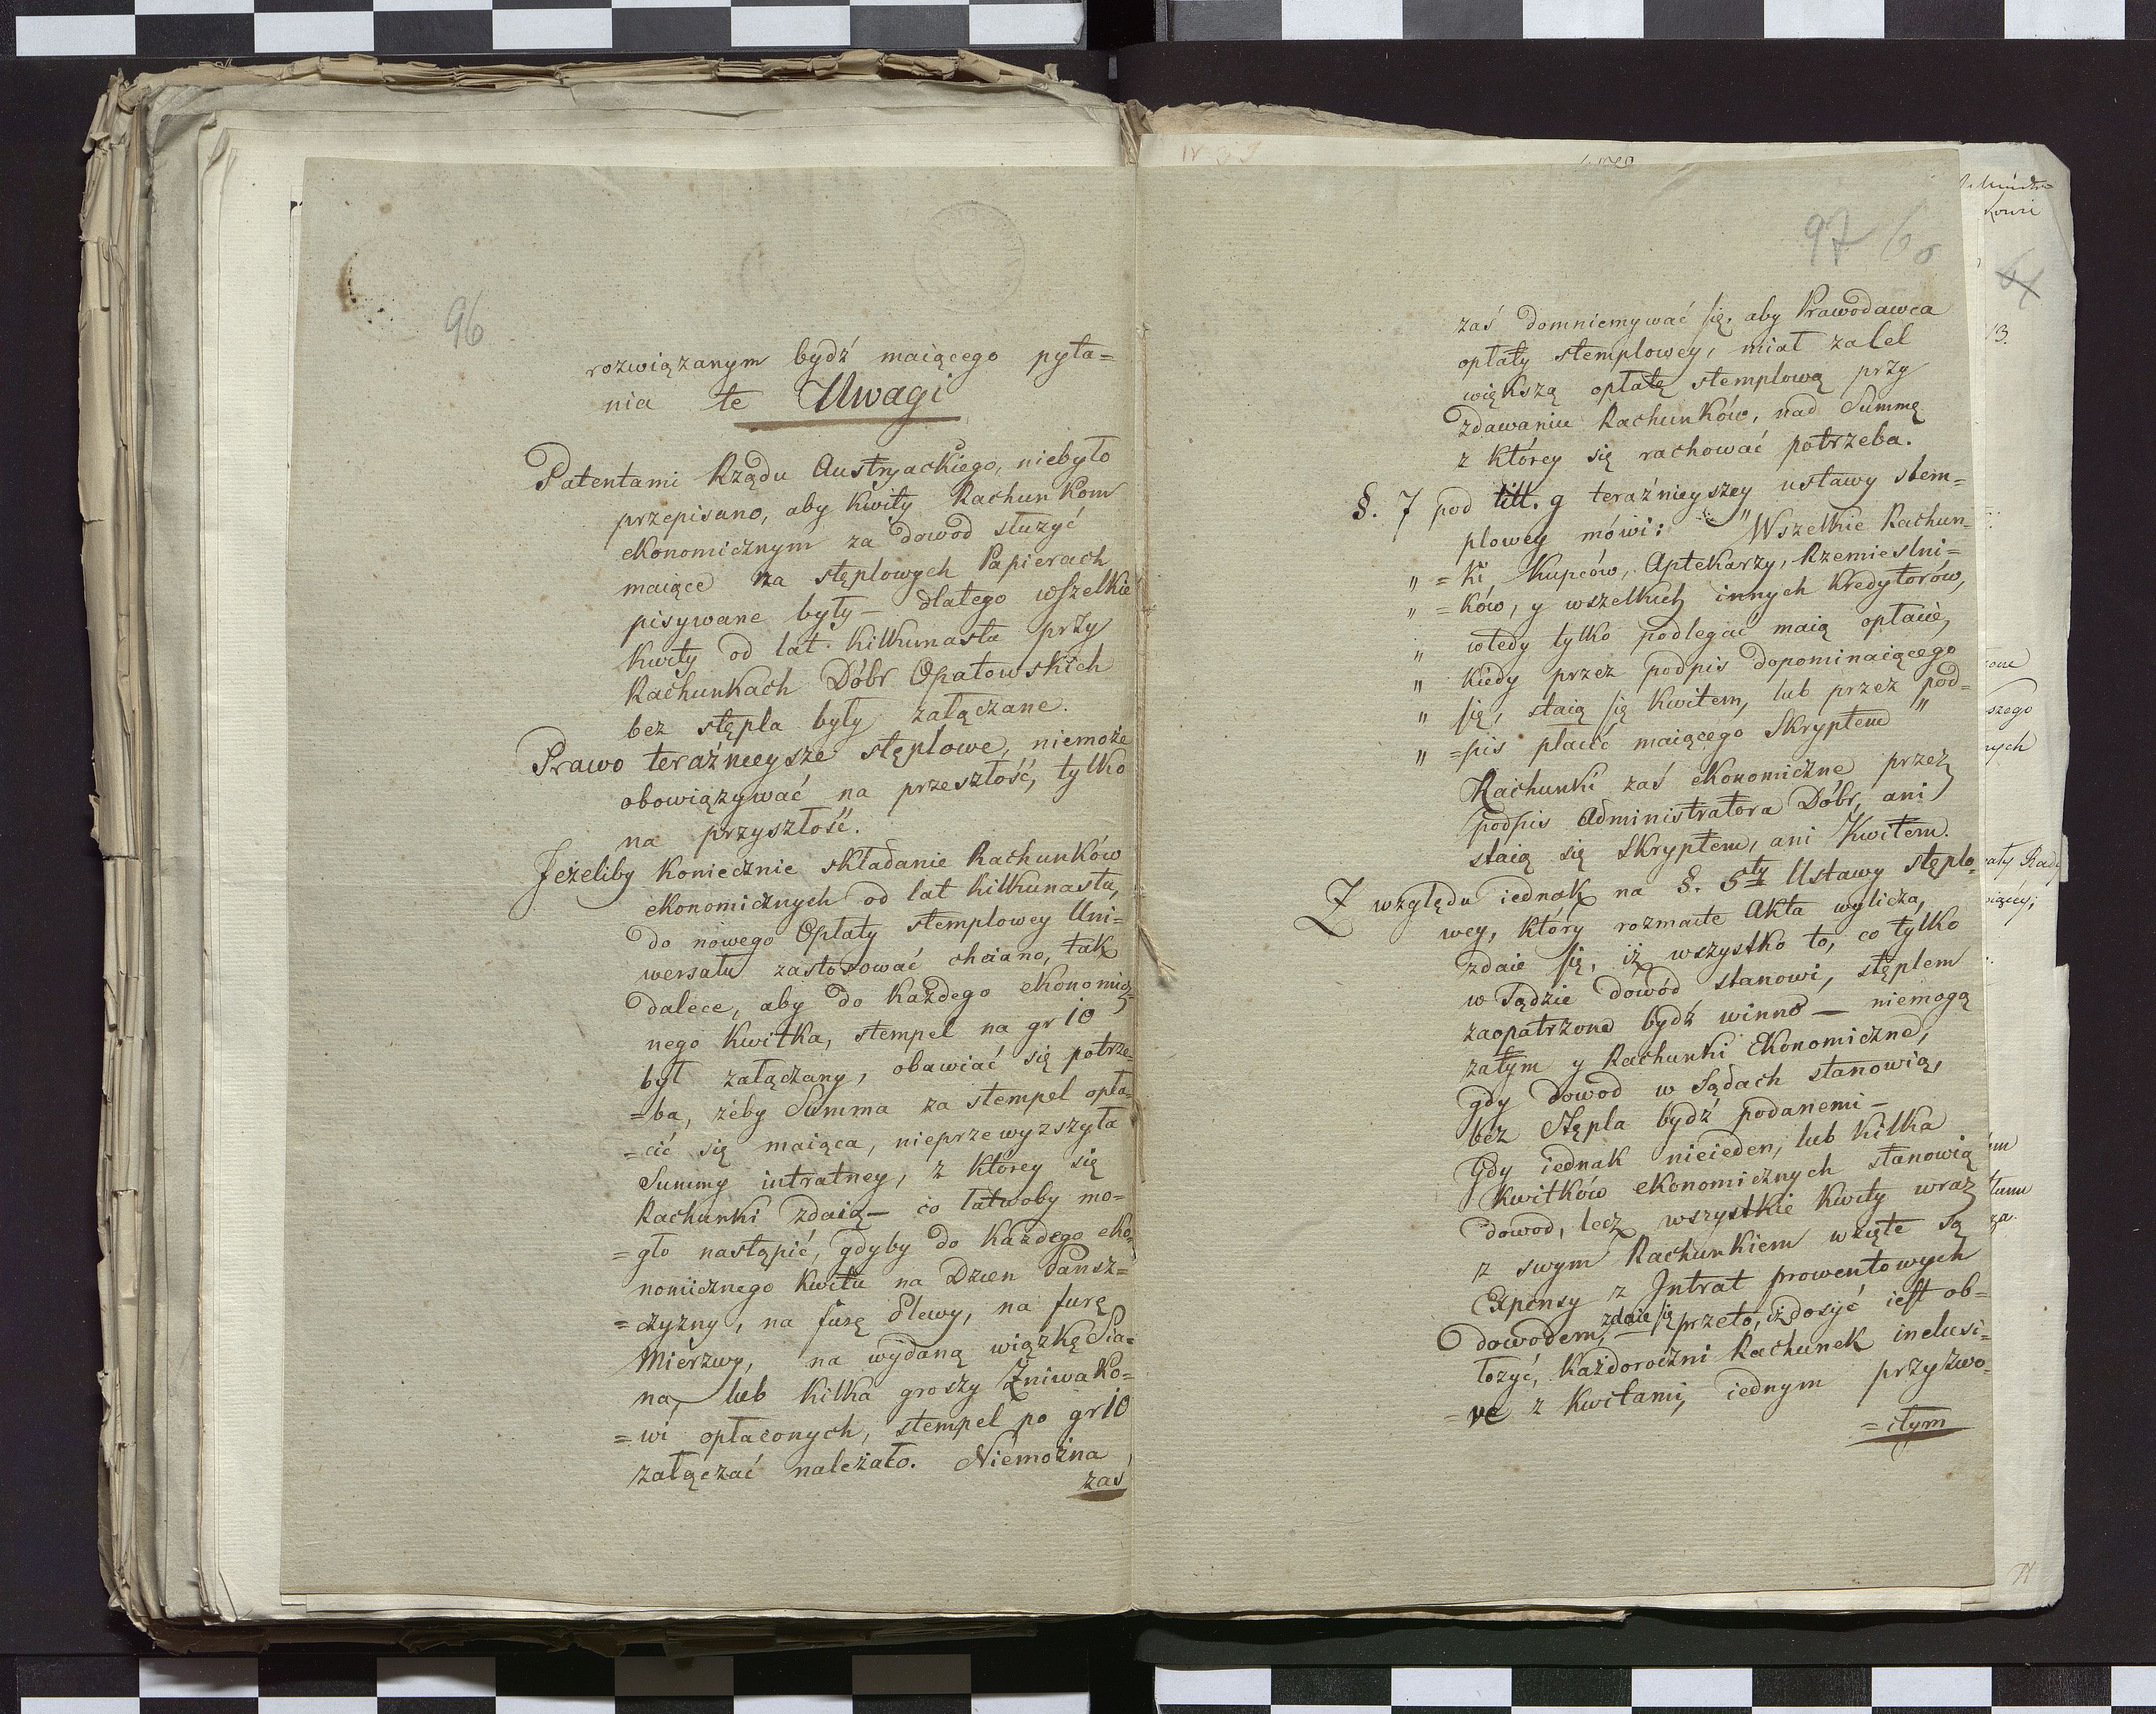 96
rozwiązanym bydź maiącego pyta=
nia te Uwagi
Patentami Rządu Austryackiego, niebyło
przepisano, aby Kwity Rachunkom
ekonomicznym za dowod służyć
maiące na stęplowych Papierach
pisywane były — dlatego wszelkie
Kwity od lat kilkunastu przy
Rachunkach Dóbr Opatowskich
bez stępla były załączane.
Prawo teraźnieysze stęplowe, niemoże
obowiązywać na przeszłość, tylko
na przyszłość.
Jeżeliby koniecznie składanie Rachunków
ekonomicznych od lat kilkunastu,
do nowego Opłaty stemplowey Uni=
wersału zastosować chciano, tak
dalece, aby do każdego ekonomicz=
nego Kwitka, stempel na gr 10
był załączany, obawiać się potrze=
=ba, żeby Summa za stempel opła=
=cić się maiąca, nieprzewyzszyła
Summy intratney, z ktorey się
Rachunki zdaią — co łatwoby mo=
=gło nastąpić, gdyby do każdego eko=
nomicznego kwitu na Dzien Pansz=
=czyzny, na furę Plewy, na furę
Mierzwy, na wydaną wiązkę Sia=
na, lub kilka groszy Żniwako=
=wi opłaconych, stempel po gr 10
załączać należało. Niemożna
zaś
97 60
zaś domniemywać się, aby Prawodawca
opłaty stemplowey, miał za Cel
większą opłatę stemplową przy
zdawaniu Rachunków, nad Summę
z ktorey się rachować potrzeba.
§. 7 pod litt. g teraźnieyszey ustawy stem=
plowey mówi: "Wszelkie Rachun=
" =ki Kupców, Aptekarzy, Rzemieslni=
" =ków, y wszelkich innych Kredytorów,
" wtedy tylko podlegać maią opłacie,
" kiedy przez podpis dopominaiącego
" się, staią się Kwitem, lub przez pod=
" =pis płacić maiącego Skryptem "
Rachunki zaś ekonomiczne przez
podpis Administratora Dóbr, ani
staią się Skryptem, ani Kwitem.
Z względu iednak na §. 5ty Ustawy stęplo=
wey, który rozmaite Akta wylicza,
zdaie się, iż wszystko to, co tylko
w Sądzie dowód stanowi, stęplem
zaopatrzone bydź winno — niemogą
zatym y Rachunki Ekonomiczne,
gdy dowod w Sądach stanowią,
bez Stępla bydź podanemi —
Gdy iednak nieieden, lub kilka
Kwitków ekonomicznych stanowią
dowod, lecz wszystkie Kwity wraz
z swym Rachunkiem wzięte są
Expensy z Jntrat prowentowych
dowodem, zdaie się przeto, iż dosyć iest ob=
łożyć, każdoroczni Rachunek inclusi=
=ve z Kwitami, iednym przyzwo=
=itym